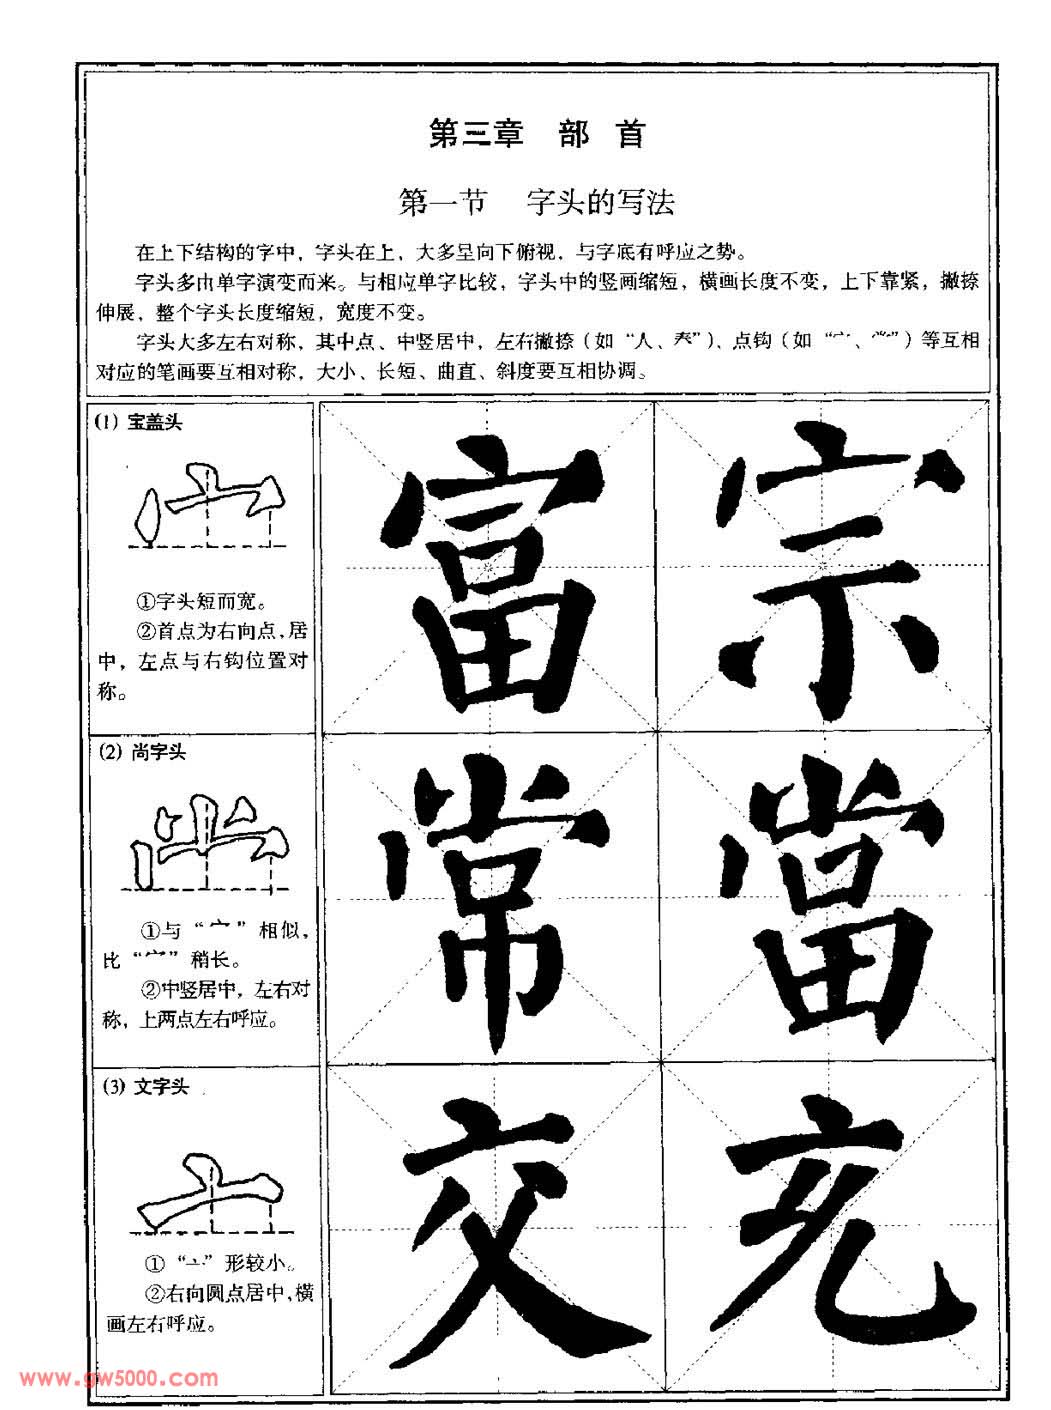 第三章 部 首
第一节 字头的写法
在上下结构的字中，字头在上，大多呈向下俯视，与字底有呼应之势。
字头多由单字演变而来。与相应单字比较，字头中的竖画缩短，横画长度不变，上下靠紧，撇捺
伸展，整个字头长度缩短，宽度不变。
字头大多左右对称，其中点、中竖居中，左右撇捺（如“人、𡗗”）、点钩（如“宀、龸”）等互相
对应的笔画要互相对称，大小、长短、曲直、斜度要互相协调。
(1) 宝盖头
①字头短而宽。
②首点为右向点，居
中，左点与右钩位置对
称。
富 宗
(2) 尚字头
①与“宀”相似，
比“宀”稍长。
②中竖居中，左右对
称，上两点左右呼应。
常 當
(3) 文字头
①“亠”形较小。
②右向圆点居中，横
画左右呼应。
交 充
www.gw5000.com